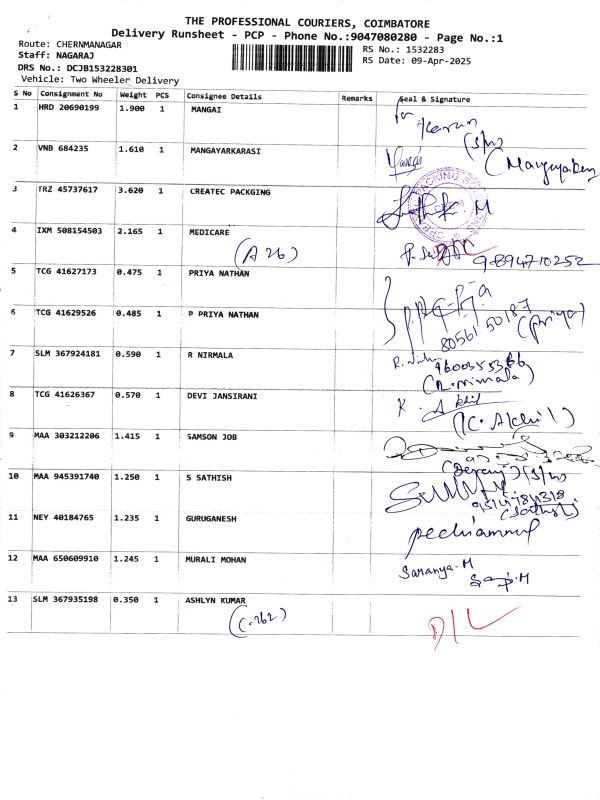 THE PROFESSIONAL COURIERS, COIMBATORE
Delivery Runsheet - PCP - Phone No.:9047080280 - Page No.:1
Route: CHERNMANAGAR
Staff: NAGARAJ
DRS No.: DCJB153228301
Vehicle: Two Wheeler Delivery
RS No.: 1532283
RS Date: 09-Apr-2025
S No Consignment No Weight PCS Consignee Details Remarks Seal & Signature
1 HRD 20690199 1.900 1 MANGAI
for
2 VNB 684235 1.610 1 MANGAYARKARASI
3 TRZ 45737617 3.620 1 CREATEC PACKGING
M
4 IXM 508154503 2.165 1 MEDICARE
(A 26) 9894710252
5 TCG 41627173 0.475 1 PRIYA NATHAN
6 TCG 41629526 0.485 1 P PRIYA NATHAN
80561 50187 (priya)
7 SLM 367924181 0.590 1 R NIRMALA
(R. nirmala)
8 TCG 41626367 0.570 1 DEVI JANSIRANI
K. Akhil
(K. Akhil)
9 MAA 303212206 1.415 1 SAMSON JOB
10 MAA 945391740 1.250 1 S SATHISH
11 NEY 40184765 1.235 1 GURUGANESH
pechiammal
12 MAA 650609910 1.245 1 MURALI MOHAN
Saranya.M
13 SLM 367935198 0.350 1 ASHLYN KUMAR
(C.262)
D/L